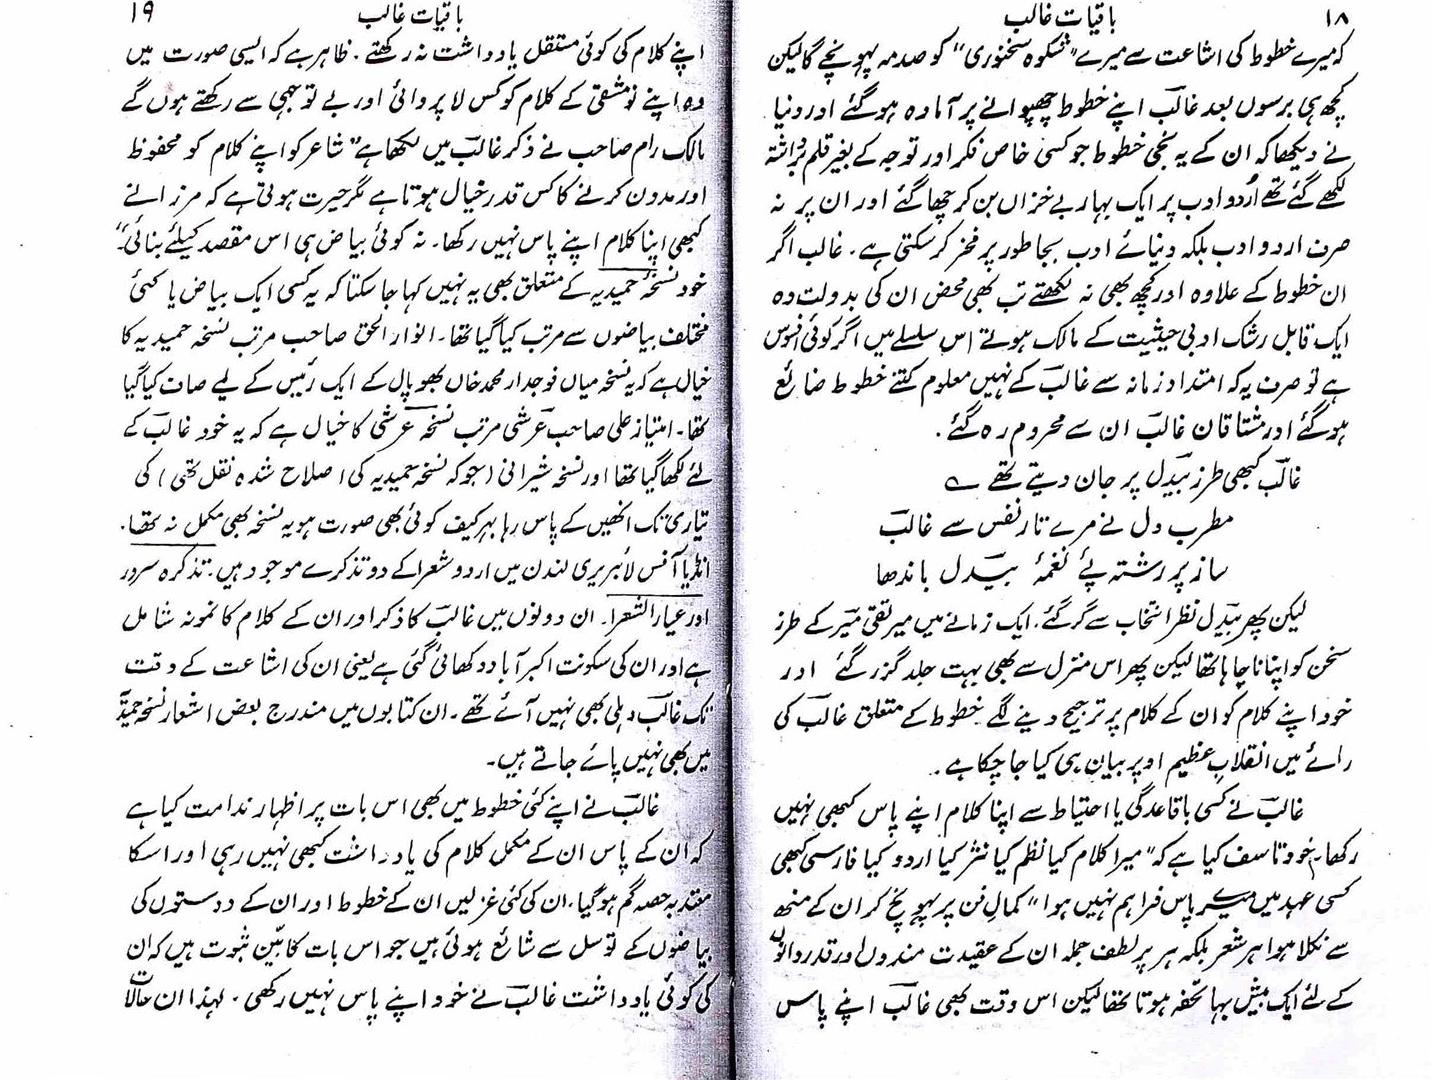 ۱۸
باقیات غالب
کہ میرے خطوط کی اشاعت سے میرے "شکوہ سخنوری" کو صدمہ پہونچے گا لیکن
کچھ ہی برسوں بعد غالب اپنے خطوط چھپوانے پر آمادہ ہو گئے اور دنیا
نے دیکھا کہ ان کے یہ نجی خطوط جو کسی خاص فکر اور توجہ کے بغیر قلم برداشتہ
لکھے گئے تھے اُردو ادب پر ایک بہار بے خزاں بن کر چھا گئے اور ان پر نہ
صرف اردو ادب بلکہ دنیائے ادب بجا طور پر فخر کر سکتی ہے۔ غالب اگر
ان خطوط کے علاوہ اور کچھ بھی نہ لکھتے تب بھی محض ان کی بدولت وہ
ایک قابل رشک ادبی حیثیت کے مالک ہوتے اس سلسلے میں اگر کوئی افسوس
ہے تو صرف یہ کہ امتداد زمانہ سے غالب کے نہیں معلوم کتنے خطوط ضائع
ہو گئے اور مشتاقان غالب ان سے محروم رہ گئے۔
غالب کبھی طرز بیدل پر جان دیتے تھے ؎
مطرب دل نے مرے تار نفس سے غالب
ساز پر رشتہ پئے نغمۂ بیدل باندھا
لیکن پھر بیدل نظر انتخاب سے گر گئے۔ ایک زمانے میں میر تقی میر کے طرز
سخن کو اپنانا چاہا تھا لیکن پھر اس منزل سے بھی بہت جلد گزر گئے اور
خود اپنے کلام کو ان کے کلام پر ترجیح دینے لگے۔ خطوط کے متعلق غالب کی
رائے میں انقلاب عظیم اوپر بیان ہی کیا جا چکا ہے۔
غالب نے کسی باقاعدگی یا احتیاط سے اپنا کلام اپنے پاس کبھی نہیں
رکھا۔ خود تاسف کیا ہے کہ "میرا کلام کیا نظم کیا نثر کیا اردو کیا فارسی کبھی
کسی عہد میں میرے پاس فراہم نہیں ہوا" کمال فن پر پہونچ کر ان کے منھ
سے نکلا ہوا ہر شعر بلکہ ہر پر لطف جملہ ان کے عقیدت مندوں اور قدردانوں
کے لئے ایک بیش بہا تحفہ ہوتا تھا لیکن اس وقت بھی غالب اپنے پاس
باقیات غالب
۱۹
اپنے کلام کی کوئی مستقل یادداشت نہ رکھتے۔ ظاہر ہے کہ ایسی صورت میں
وہ اپنے نومشقی کے کلام کو کس لا پروائی اور بے توجہی سے رکھتے ہوں گے
مالک رام صاحب نے ذکر غالب میں لکھا ہے "شاعر کو اپنے کلام کو محفوظ
اور مدون کرنے کا کس قدر خیال ہوتا ہے مگر حیرت ہوتی ہے کہ مرزا نے
کبھی اپنا کلام اپنے پاس نہیں رکھا۔ نہ کوئی بیاض ہی اس مقصد کیلئے بنائی"
خود نسخۂ حمیدیہ کے متعلق بھی یہ نہیں کہا جا سکتا کہ یہ کسی ایک بیاض یا کئی
مختلف بیاضوں سے مرتب کیا گیا تھا۔ انوار الحق صاحب مرتب نسخہ حمیدیہ کا
خیال ہے کہ یہ نسخہ میاں فوجدار محمد خاں بھوپال کے ایک رئیس کے لیے صاف کیا گیا
تھا۔ امتیاز علی صاحب عرشی مرتب نسخہ عرشی کا خیال ہے کہ یہ خود غالب کے
لئے لکھا گیا تھا اور نسخہ شیرانی (جو کہ نسخہ حمیدیہ کی اصلاح شدہ نقل تھی) کی
تیاری تک انھیں کے پاس رہا بہر کیف کوئی بھی صورت ہو یہ نسخہ بھی مکمل نہ تھا۔
انڈیا آفس لائبریری لندن میں اردو شعرا کے دو تذکرے موجود ہیں۔ تذکرہ سرور
اور عیار الشعرا۔ ان دونوں میں غالب کا ذکر اور ان کے کلام کا نمونہ شامل
ہے اور ان کی سکونت اکبر آباد دکھائی گئی ہے یعنی ان کی اشاعت کے وقت
تک غالب دہلی بھی نہیں آئے تھے۔ ان کتابوں میں مندرج بعض اشعار نسخہ حمیدیہ
میں بھی نہیں پائے جاتے ہیں۔
غالب نے اپنے کئی خطوط میں بھی اس بات پر اظہار ندامت کیا ہے
کہ ان کے پاس ان کے مکمل کلام کی یادداشت کبھی نہیں رہی اور اسکا
معتدبہ حصہ گم ہو گیا۔ ان کی کئی غزلیں ان کے خطوط اور ان کے دوستوں کی
بیاضوں کے توسل سے شائع ہوئی ہیں جو اس بات کا بین ثبوت ہیں کہ ان
کی کوئی یادداشت غالب نے خود اپنے پاس نہیں رکھی۔ لہذا ان حالات